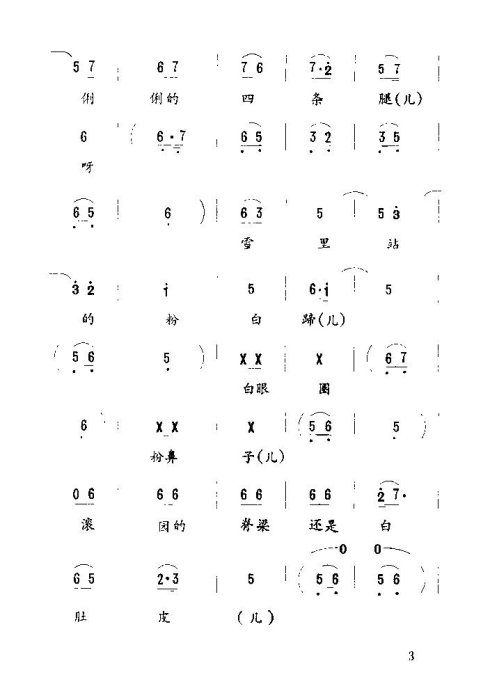 5 7 | 6 7 | 7 6 | 7·2 | 5 7
俐 俐的 四 条 腿(儿)
6 | (6·7 | 6 5 | 3 2 | 3 5
呀
6 5 | 6 ) | 6 3 | 5 | 5 3
雪 里 站
3 2 | i | 5 | 6·i | 5
的 粉 白 蹄(儿)
(5 6 | 5 ) | X X | X | (6 7
白眼 圈
6 | X X | X | (5 6 | 5 )
粉鼻 子(儿)
0 6 | 6 6 | 6 6 | 6 6 | 2 7·
滚 园的 脊梁 还是 白
0 0
6 5 | 2·3 | 5 | (5 6 | 5 6 )
肚 皮 (儿)
3